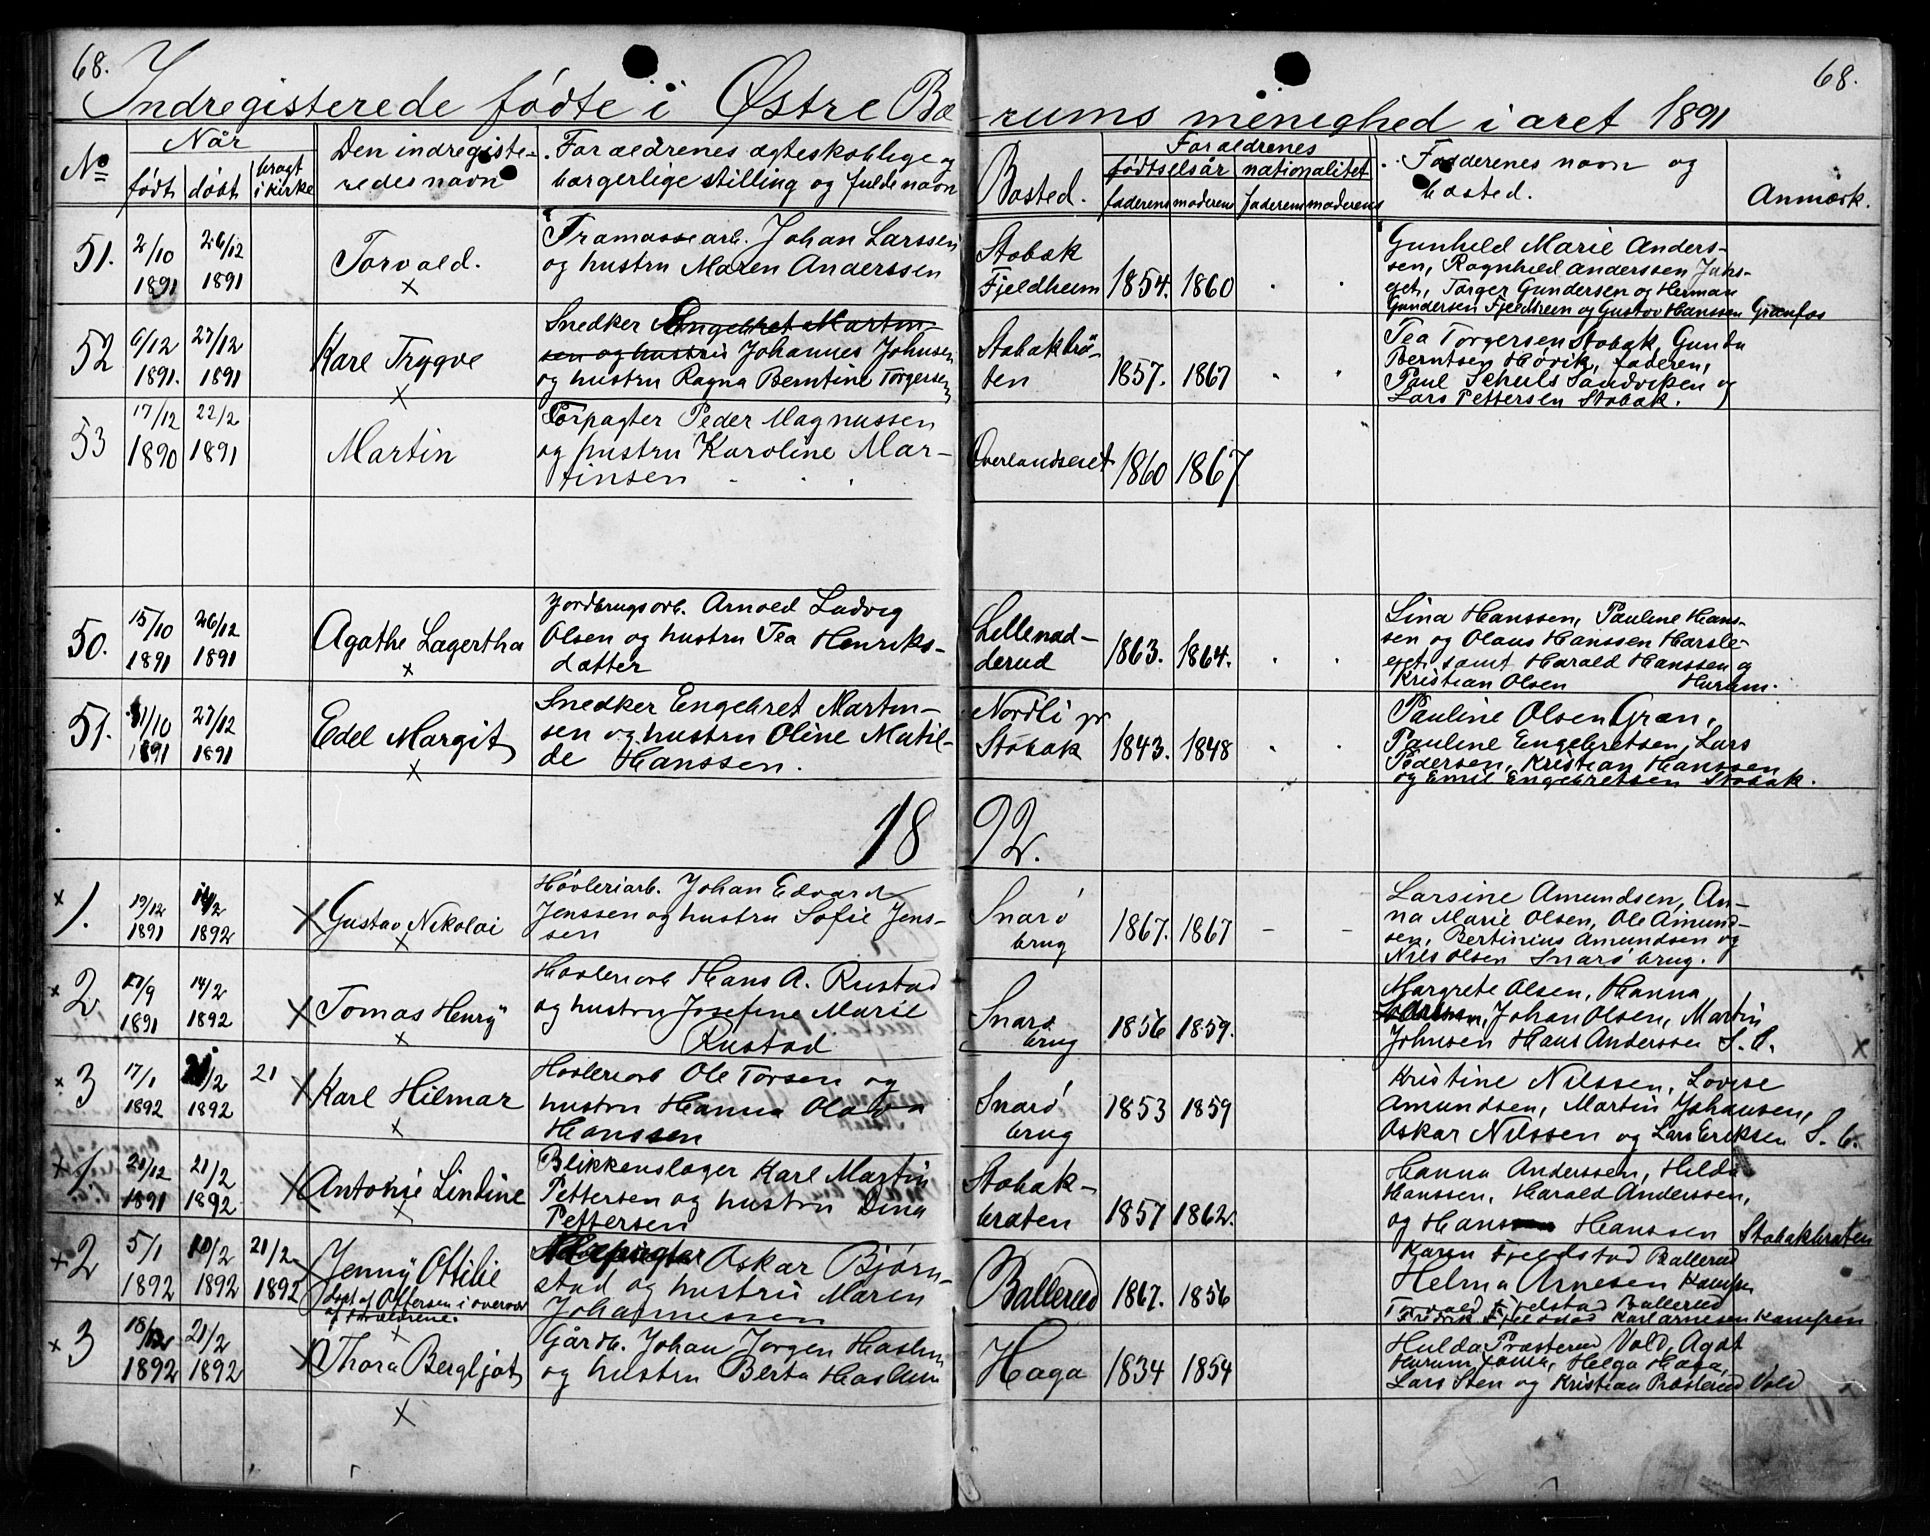 68.
68.
Indregisterede fødte i Østre Bærums menighed i aret 1891
No
Når
født
døbt
bragt i kirke
Den indregiste-
redes navn
Foraldrenes agteskablige og
bargerlige stilling og fulde navn
Bosted.
Foraldrenes
fødtselsår
nationalitet
faderens
moderens
faderens
moderens
Fadderenes navn og
bosted.
Anmærk.
51.
2/10 1891
26/12 1891
Torvald.
Johan Larssen
og hustru Maren Anderssen
Stabæk
Fjeldheim
1854.
1860
Gunhild Marie Anders-
sen, Ragnhild Anderssen
Torger Gundersen og Herman
Gundersen Fjeldheim og Gustav Hanssen Granfos
52
6/12 1891.
27/12 1891
Kare Trygve
Snedker Engebret Martin-
sen og hustru Johannes Johnsen
og hustru Ragna Berntine Torgersen
Stabakbrå-
ten
1857.
1867
Tea Torgersen Stabak, Gunda
Berntsen Høvik, faderen,
Paul Schuls Sandviken og
Lars Pettersen Stabak.
53
17/12 1890
22/2 1891
Martin
Forpagter Peder Magnussen
og hustru Karoline Mar-
tinsen
Øverlandseiet
1860
1867
50.
15/10 1891
26/12 1891
Agathe Lagertha
Jordbrugsarb. Arnold Ludvig
Olsen og hustru Tea Henriks-
datter
Lillenad-
derud
1863.
1864.
Lina Hanssen, Pauline Hans-
sen og Olaus Hanssen Harsle-
eget, samt Harald Hanssen og
Kristian Olsen Hurum.
51.
/10 1891
27/12 1891
Edel Margit
Snedker Engebret Martin-
sen og hustru Oline Matil-
de Hanssen.
Nordli pr
Stabak
1843.
1848
Pauline Olsen Gran,
Pauline Engebretsen, Lars
Pedersen, Kristian Hanssen
og Emil Engebretsen Stabak.
1892.
x 1.
19/12 1891
14/2 1892
Gustav Nikolai
Høvleriarb. Johan Edvard
Jenssen og hustru Sofie Jens-
sen
Snarø
brug
1867.
1867
Larsine Amundsen, An-
na Marie Olsen, Ole Amund-
sen, Bertinius Amundsen og
Nils Olsen Snarø brug.
x 2
/9 1891
14/2 1892
Tomas Henrÿ
Høvleriarb Hans A. Rustad
og hustru Josefine Marie
Rustad
Snarø
brug
1856
1859.
Margrete Olsen, Hanna
Johan Olsen, Martin
Johnsen Hans Anderssen S. b.
x 3
17/1 1892
21/2 1892
21
Karl Hilmar
Høvleriarb Ole Torsen og
hustru Hanna Olava
Hanssen
Snarø
brug
1853
1859
Kristine Nilssen, Lovise
Amundsen, Martin Johansen,
Oskar Nilssen og Lars Eriksen S. b.
x 1
21/12 1891
21/2 1892
Antonie Lindine
Blikkenslager Karl Martin
Pettersen og hustru Dina
Pettersen
Stabak-
braten
1857
1862.
Hanna Anderssen, Hilda
Hanssen, Harald Anderssen,
og Hans Hanssen Stabakbraten
x 2
5/1 1892
/2 1892
21/2 1892
Jennÿ Ottilie
døpt af Offersen i overvær
af foraldrene.
Oskar Bjørn-
stad og hustru Maren
Johannessen
Ballerud
1867.
1856
Karen Fjeldstad Ballerud
Helma Arnesen Kampen
Torvald Fjelstad Ballerud
Fredrik Fjeldstad Karl Arnesen Kampen
x 3
18/ 1892
21/2 1892
Thora Bergljot
Gårdb. Johan Jørgen Haslum
og hustru Berta Haslum
Haga
1834
1854
Hulda Præsterud Vold, Agat
Hurum, Helga Haga,
Lars Sten og Kristian Præsterud Vold